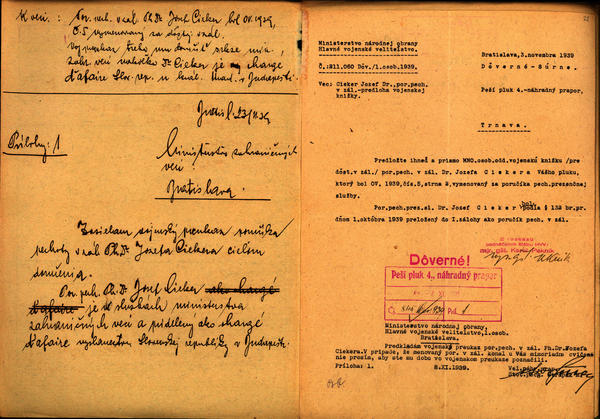 K veci: Por. pech. v zál. Ph. Dr. Jozef Cieker bol OV. 1939,
č. 5 vymenovaný za
Dr Cieker je chargé
d'afaire Slov. rep. u Maď. v Budapešti.
23/11 39
Prílohy: 1
Ministerstvo zahraničných
vecí
Bratislava.
Zasielam vojenský preukaz poručíka
pechoty v zál. Ph. Dr. Jozefa Ciekera cieľom
doručenia.
Por. pech. Ph. Dr. Jozef Cieker ako chargé
d'afaire je v službách ministerstva
zahraničných vecí a pridelený ako chargé
d'afaire vyslanectva Slovenskej republiky v Budapešti.
Ministerstvo národnej obrany
Hlavné vojenské veliteľstvo.
Bratislava, 3.novembra 1939
Č.:211.060 Dôv./1.osob.1939.
Dôverné-Súrne.
Vec: Cieker Jozef Dr.,por.pech.
v zál.-predloha vojenskej
knižky.
Peší pluk 4.-náhradný prapor,
Trnava.
Predložte ihneď a priamo MNO.osob.odd.vojenskú knižku /pre
dôst.v zál./ por.pech. v zál. Dr. Jozefa Ciekera Vášho pluku,
ktorý bol OV, 1939,čís.5,strana 2,vymenovaný za poručíka pech.prezenčnej
služby.
Por.pech.prez.sl. Dr. Jozef Cieker bol podľa § 132 br.pr.
dňom 1.októbra 1939 preložený do I.zálohy ako poručík pech. v zál.
Z rozkazu
Dôverné!
Peší pluk 4., náhradný prapor
Príl. 1
Ministerstvo národnej obrany,
Hlavné vojenské veliteľstvo,1.osob.
Bratislava.
Predkladám vojenský preukaz por.pech. v zál. Ph.Dr.Jozefa
Ciekera.V prípade, že menovaný por. v zál. konal u Vás mimoriadne cvičenie
prosím, aby ste mu dobu vo vojenskom preukaze poznačili.
Príloha: 1.
8.XI.1939.